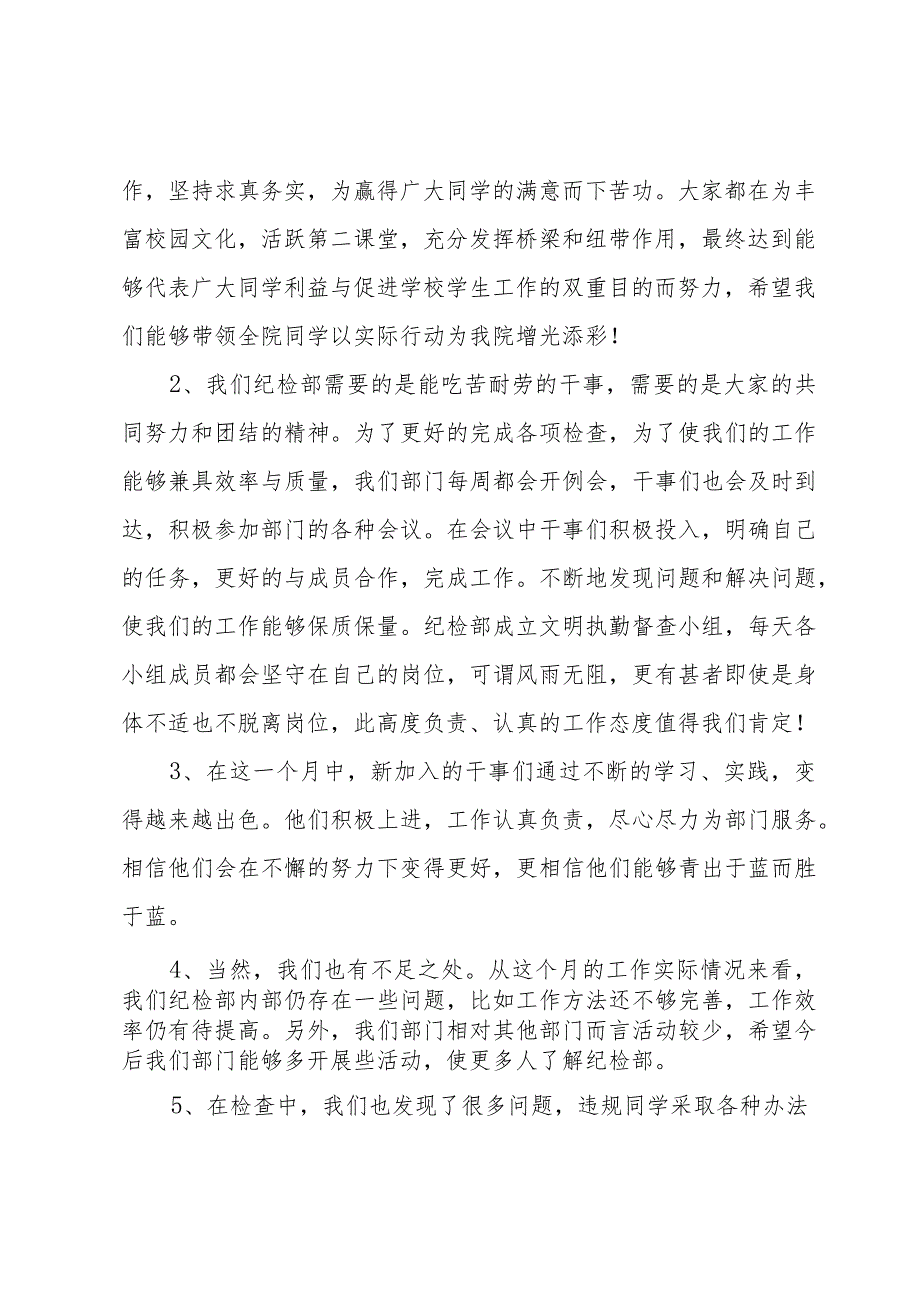 作，坚持求真务实，为赢得广大同学的满意而下苦功。大家都在为丰
富校园文化，活跃第二课堂，充分发挥桥梁和纽带作用，最终达到能
够代表广大同学利益与促进学校学生工作的双重目的而努力，希望我
们能够带领全院同学以实际行动为我院增光添彩！
2、我们纪检部需要的是能吃苦耐劳的干事，需要的是大家的共
同努力和团结的精神。为了更好的完成各项检查，为了使我们的工作
能够兼具效率与质量，我们部门每周都会开例会，干事们也会及时到
达，积极参加部门的各种会议。在会议中干事们积极投入，明确自己
的任务，更好的与成员合作，完成工作。不断地发现问题和解决问题，
使我们的工作能够保质保量。纪检部成立文明执勤督查小组，每天各
小组成员都会坚守在自己的岗位，可谓风雨无阻，更有甚者即使是身
体不适也不脱离岗位，此高度负责、认真的工作态度值得我们肯定！
3、在这一个月中，新加入的干事们通过不断的学习、实践，变
得越来越出色。他们积极上进，工作认真负责，尽心尽力为部门服务。
相信他们会在不懈的努力下变得更好，更相信他们能够青出于蓝而胜
于蓝。
4、当然，我们也有不足之处。从这个月的工作实际情况来看，
我们纪检部内部仍存在一些问题，比如工作方法还不够完善，工作效
率仍有待提高。另外，我们部门相对其他部门而言活动较少，希望今
后我们部门能够多开展些活动，使更多人了解纪检部。
5、在检查中，我们也发现了很多问题，违规同学采取各种办法